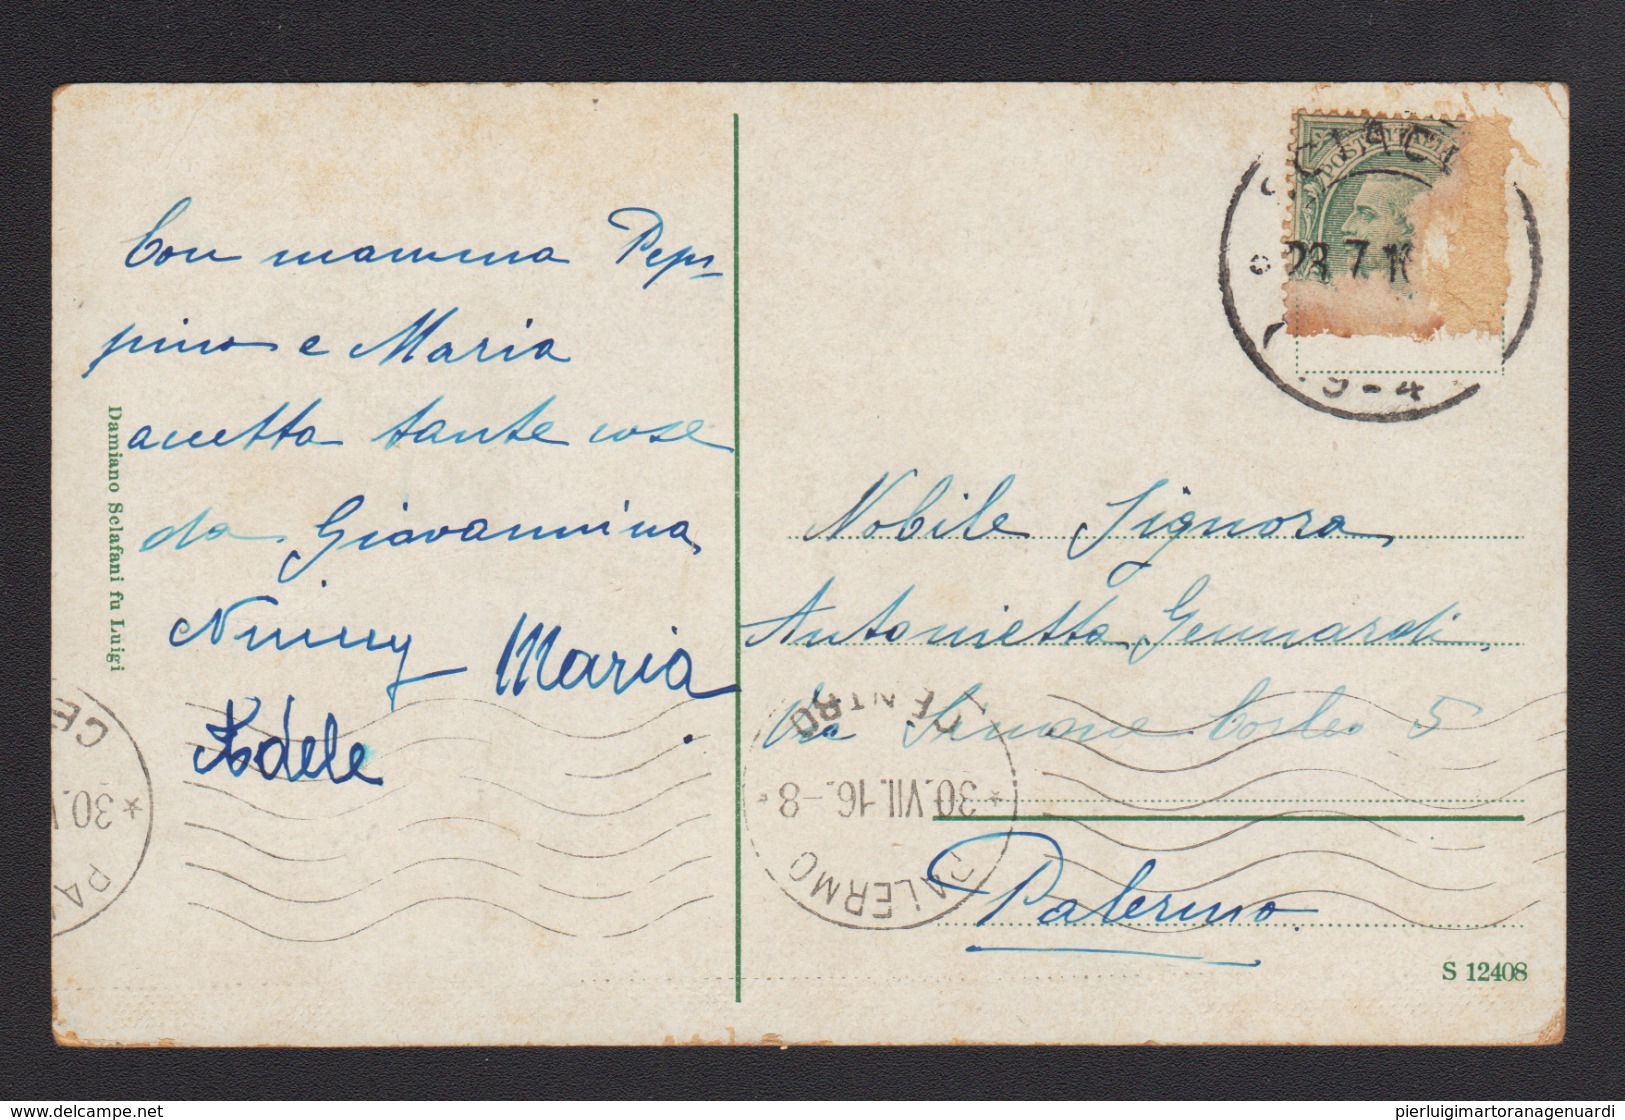 Con mamma Pep-
pino e Maria
accetta tante cose
da Giovannina,
Ninny Maria
Adele
Damiano Sclafani fu Luigi
POSTE ITALIANE
28 7 16
9-4
Nobile Signora
Antonietta Gennardi
Via Simone Corleo 5
Palermo
PALERMO CENTRO
*30.VII.16-8*
CE
*30.V
PA
S 12408
delcampe.net
pierluigimartoranagenuardi